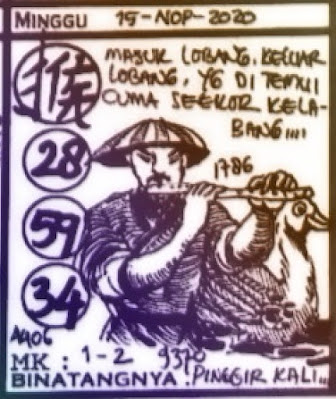 MINGGU 15-NOP-2020
MASUK LOBANG, KELUAR
LOBANG, YG DI TEMUI
CUMA SEEKOR KELA-
BANG....
猴
28
1786
59
34
A906
MK : 1-2 9370
BINATANGNYA : PINGGIR KALI...